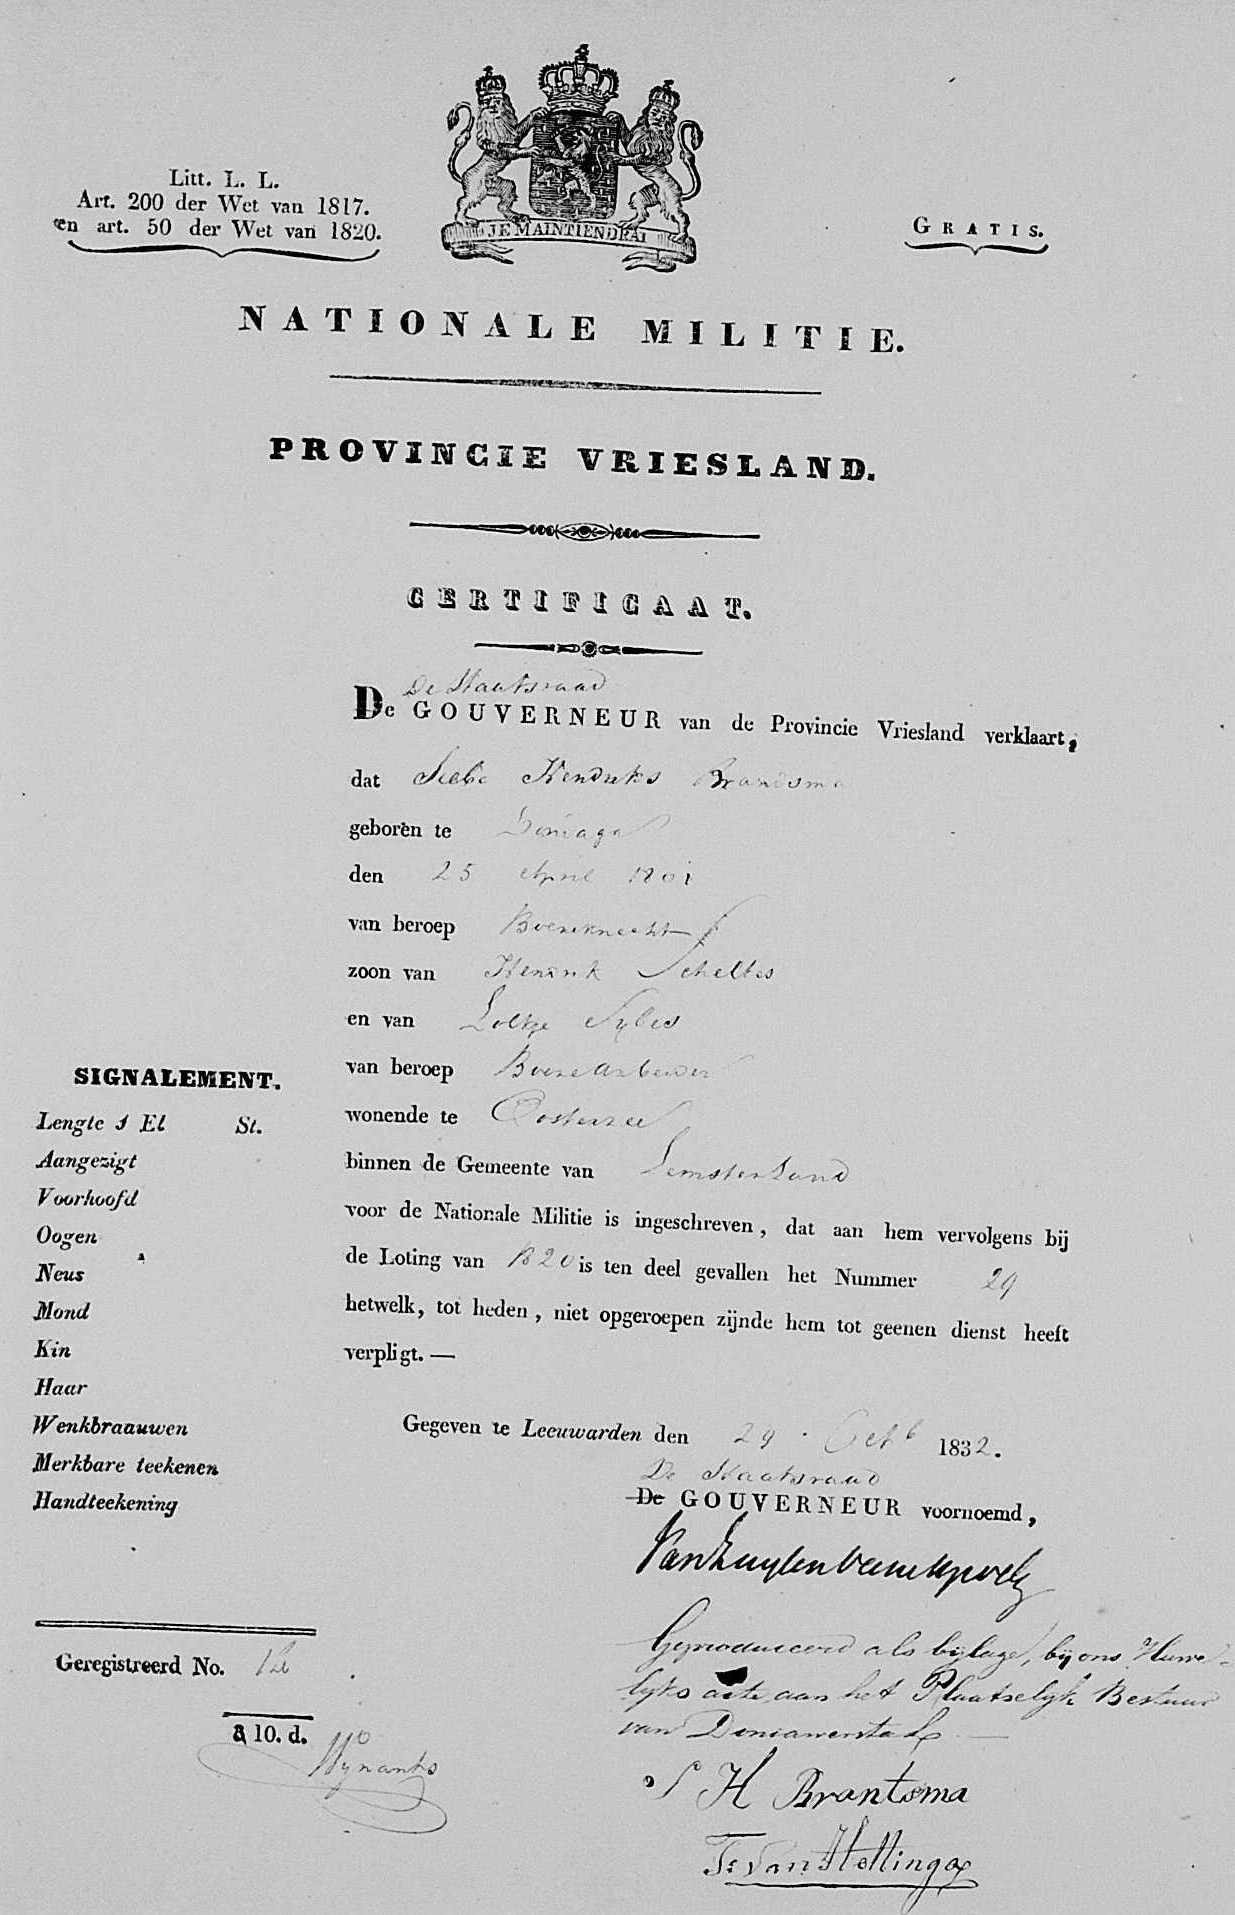 JE MAINTIENDRAI
Litt. L. L.
Art. 200 der Wet van 1817.
en art. 50 der Wet van 1820.
GRATIS.
NATIONALE MILITIE.
PROVINCIE VRIESLAND.
CERTIFICAAT.
De Staatsraad
De GOUVERNEUR van de Provincie Vriesland verklaart,
dat Siebe Hendriks Brandsma
geboren te Doniaga
den 25 April 1801
van beroep Boereknecht
zoon van Hendrik Scheltes
en van Loltje Sybes
van beroep Boerearbeider
wonende te Oosterzee
binnen de Gemeente van Lemsterland
voor de Nationale Militie is ingeschreven, dat aan hem vervolgens bij
de Loting van 1820 is ten deel gevallen het Nummer 29
hetwelk, tot heden, niet opgeroepen zijnde hem tot geenen dienst heeft
verpligt. —
SIGNALEMENT.
Lengte 1 El St.
Aangezigt
Voorhoofd
Oogen
Neus
Mond
Kin
Haar
Wenkbraauwen
Merkbare teekenen
Handteekening
Gegeven te Leeuwarden den 29 Octb 1832.
De Staatsraad
De GOUVERNEUR voornoemd,
Geregistreerd No. 12
à 10. d.
Wynants
Geproduceerd als bijlage, bij ons Huwe-
lyks acte aan het Plaatselyk Bestuur
van Doniawerstal
S H Brantsma
Ts Van Hellinga